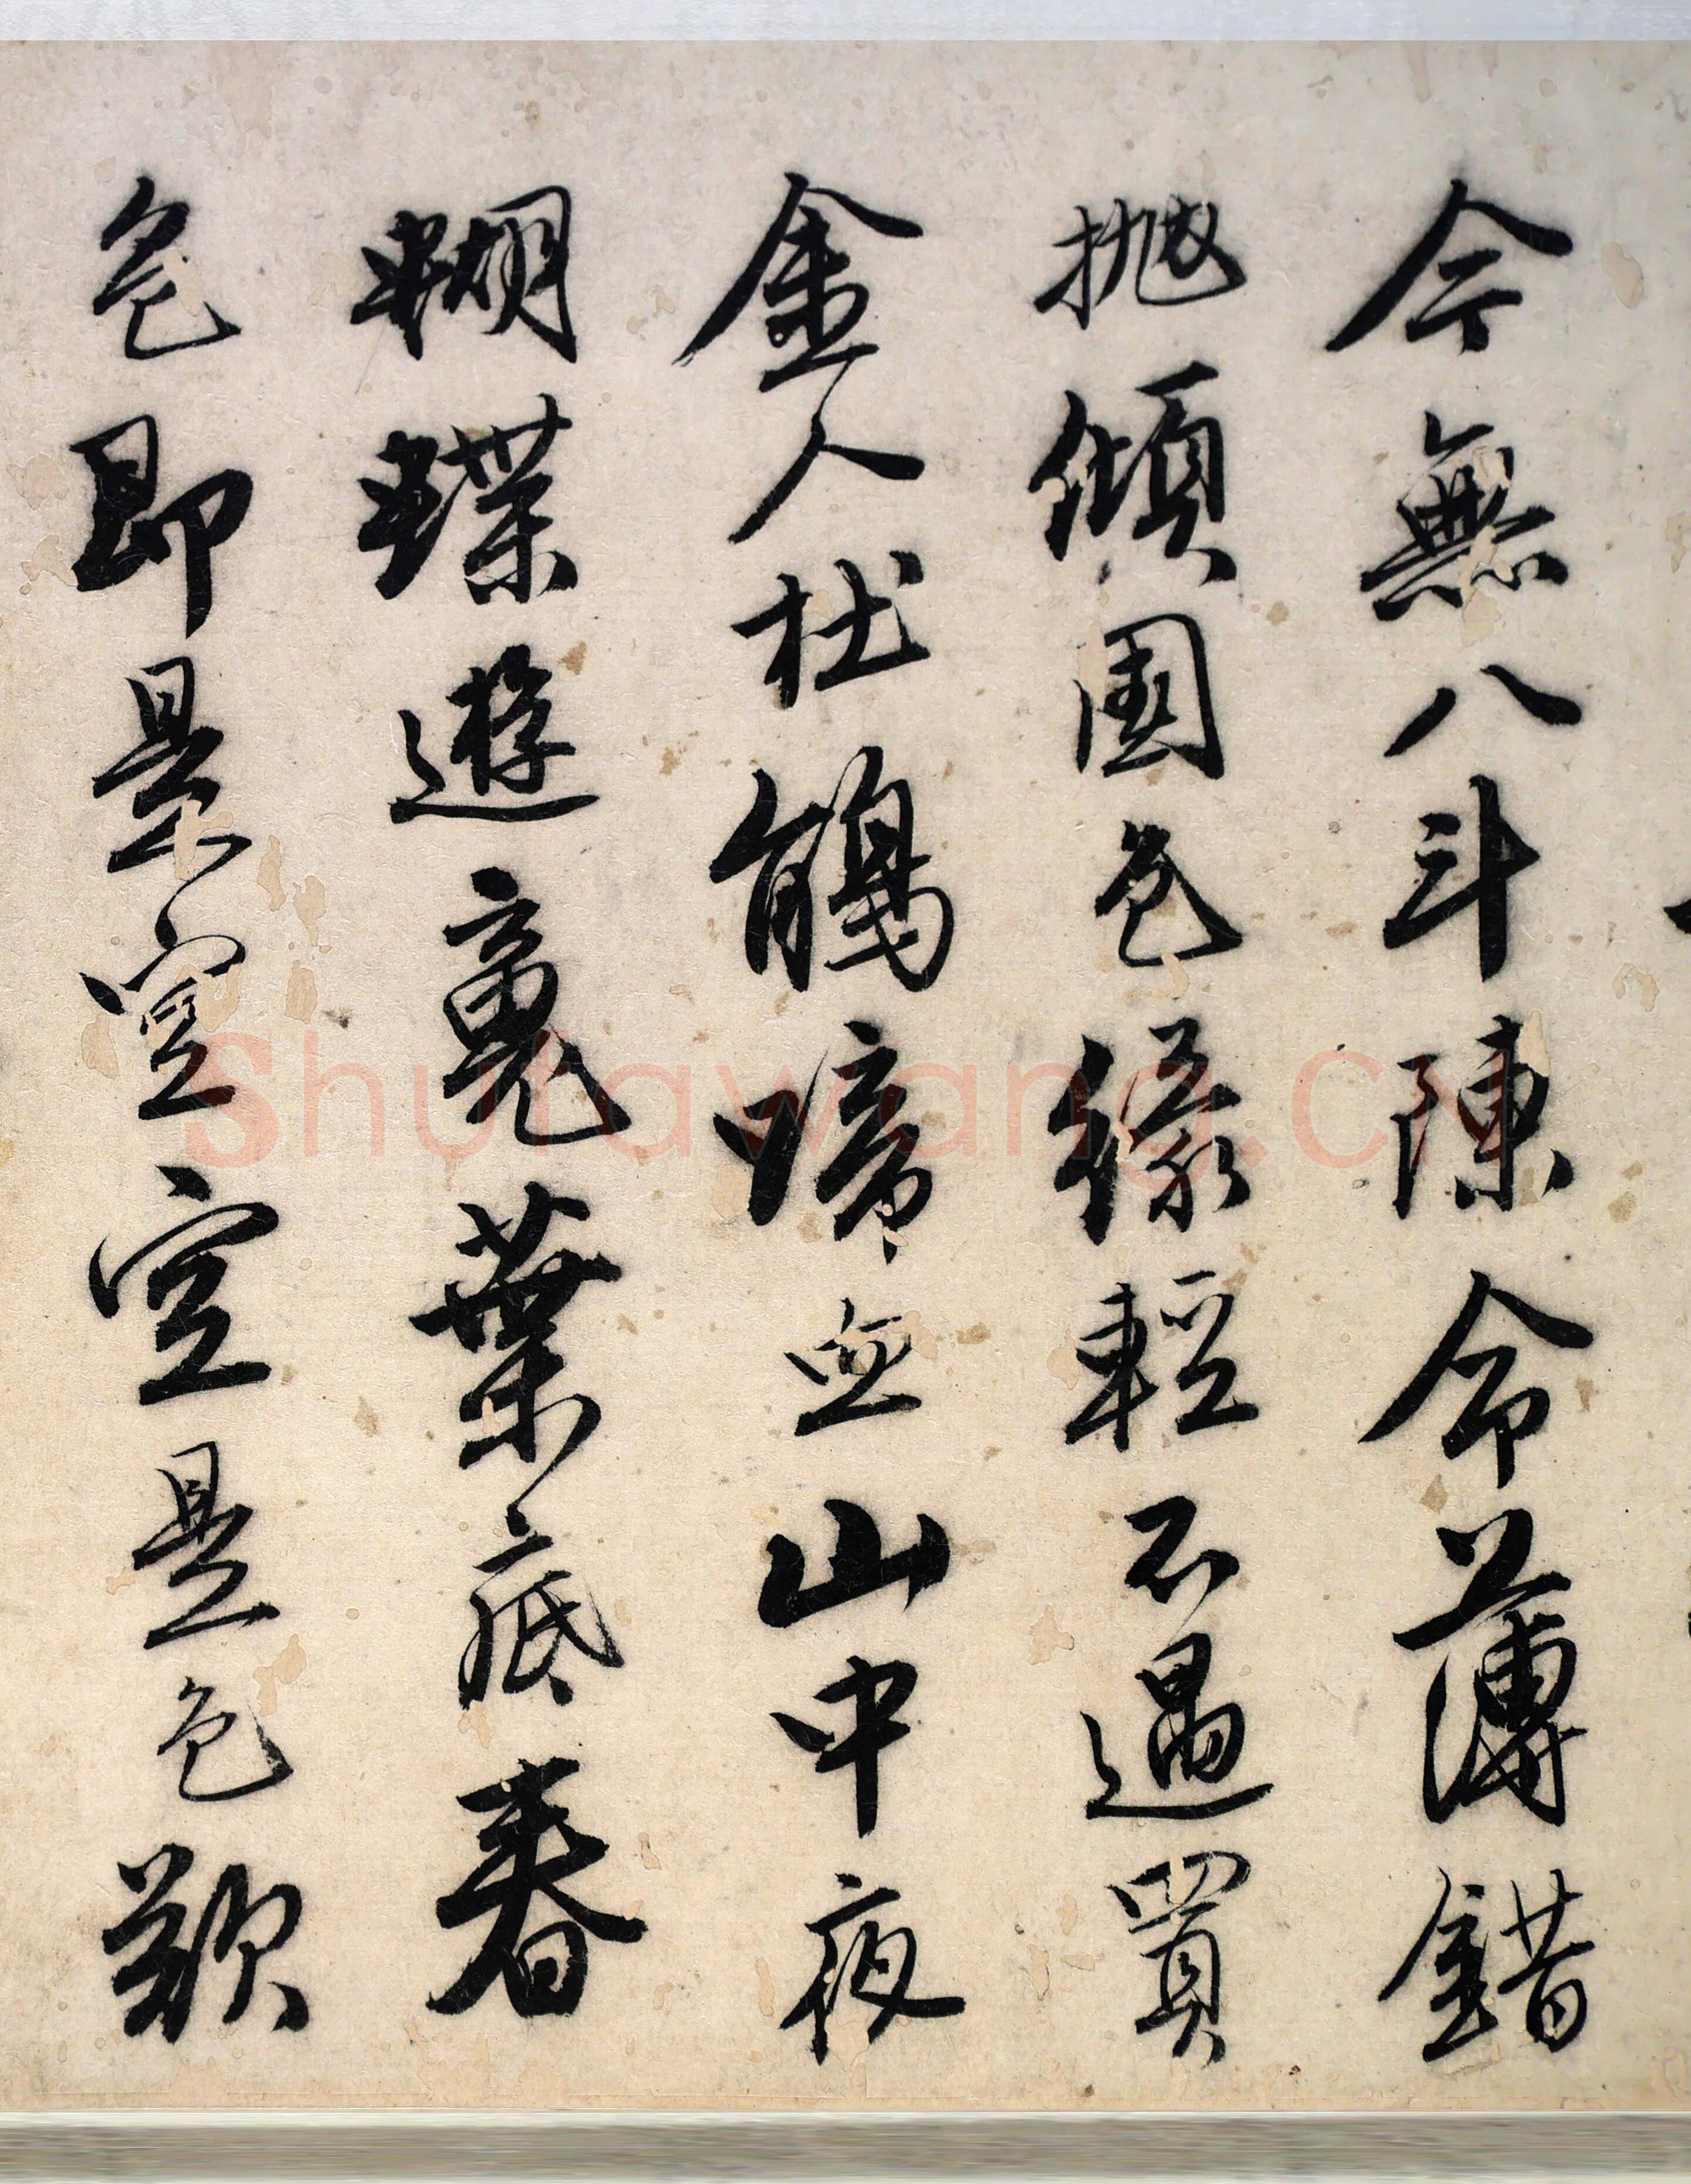 今無八斗陳命薄錯
抛傾國色緣輕不遇買
金人杜鵑啼血山中夜
蝴蝶遊魂葉底春
色即是空空是色歎
Shufawang.cn